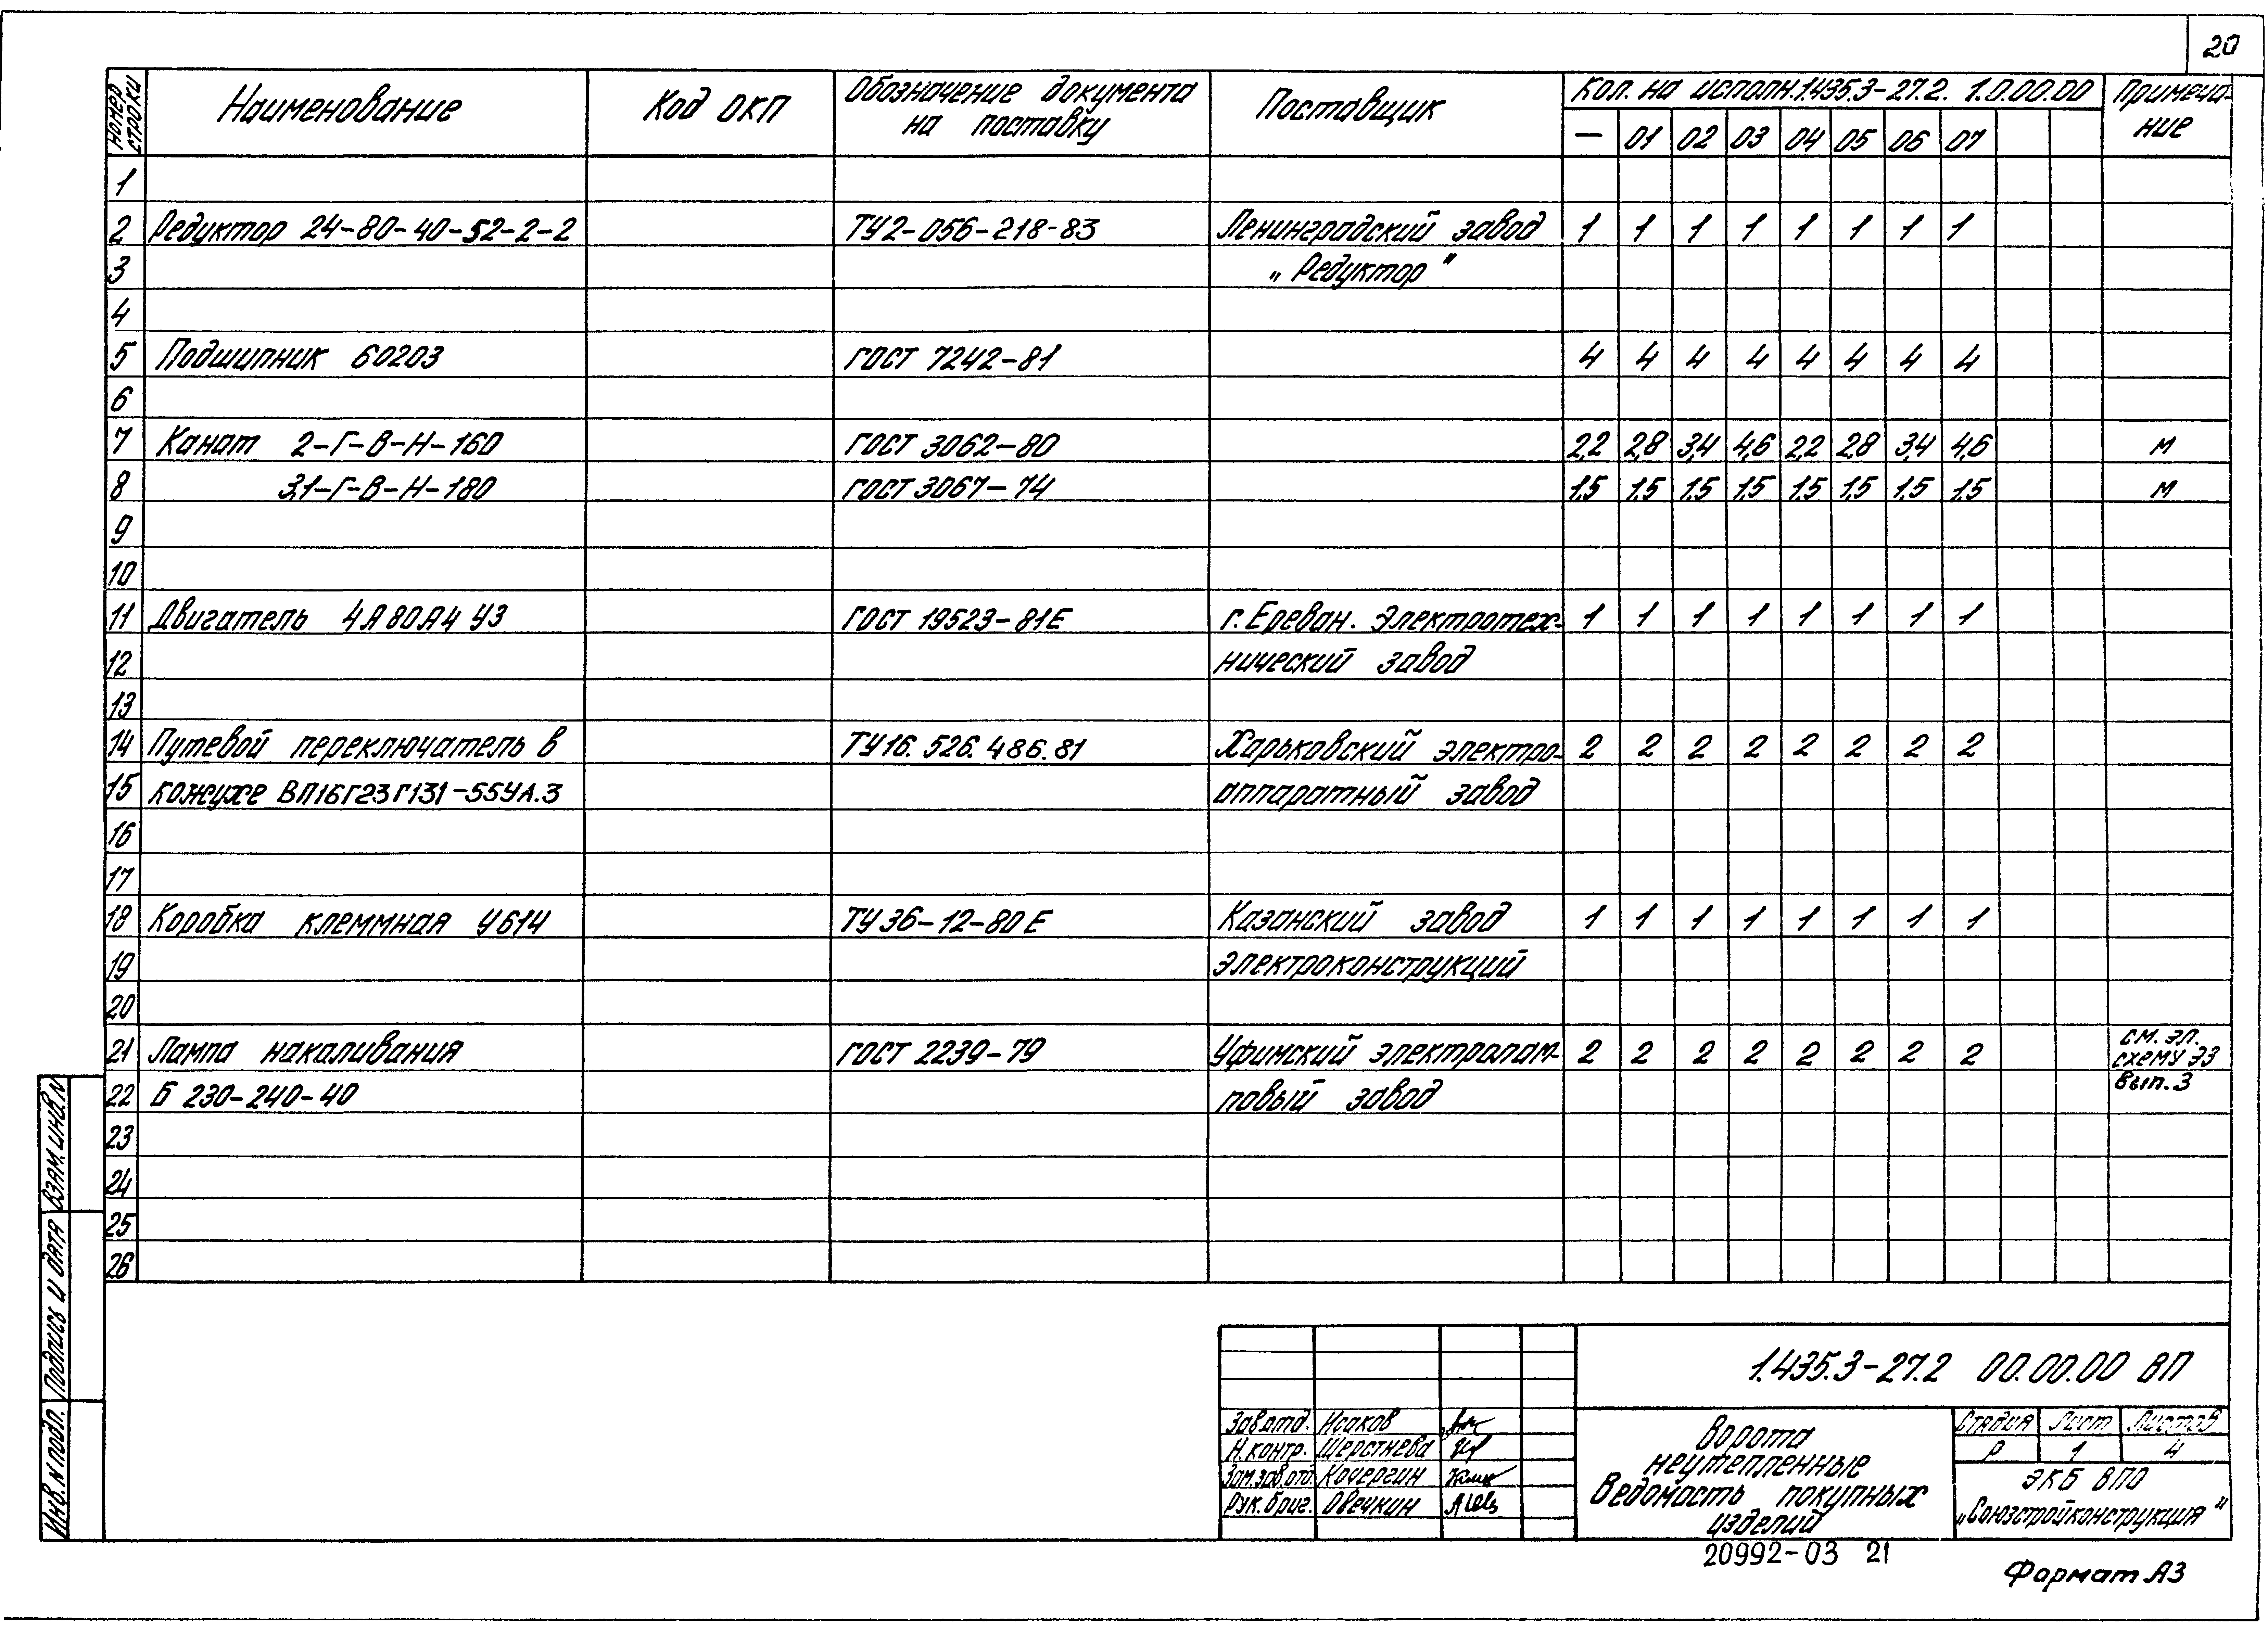 20
Номер строки Наименование Код ОКП Обозначение документа на поставку Поставщик Кол. на исполн. 1.435.3-27.2. 1.0.00.00 Примеча-ние
— 01 02 03 04 05 06 07
1
2 Редуктор 24-80-40-52-2-2 ТУ2-056-218-83 Ленинградский завод 1 1 1 1 1 1 1 1
3 „Редуктор"
4
5 Подшипник 60203 ГОСТ 7242-81 4 4 4 4 4 4 4 4
6
7 Канат 2-Г-В-Н-160 ГОСТ 3062-80 2,2 2,8 3,4 4,6 2,2 2,8 3,4 4,6 м
8 3,1-Г-В-Н-180 ГОСТ 3067-74 1,5 1,5 1,5 1,5 1,5 1,5 1,5 1,5 м
9
10
11 Двигатель 4А80А4 У3 ГОСТ 19523-81Е г. Ереван. Электротех- 1 1 1 1 1 1 1 1
12 нический завод
13
14 Путевой переключатель в ТУ16.526.486.81 Харьковский электро- 2 2 2 2 2 2 2 2
15 кожухе ВП16Г23Г131-55УА.3 аппаратный завод
16
17
18 Коробка клеммная У614 ТУ36-12-80Е Казанский завод 1 1 1 1 1 1 1 1
19 электроконструкций
20
21 Лампа накаливания ГОСТ 2239-79 Уфимский электролам- 2 2 2 2 2 2 2 2 см. эл. схему ЭЗ
22 Б 230-240-40 повый завод вып. 3
23
24
25
26
Взам. инв. N
Подпись и дата
Инв. N подл.
1.435.3-27.2 00.00.00 ВП
Зав.отд. Исаков
Н.контр. Шерстнева
Зам.зав.отд. Кочергин
Рук. бриг. Овечкин
Ворота
неутепленные
Ведомость покупных
изделий
Стадия Лист Листов
Р 1 4
ЭКБ ВПО
„Союзстройконструкция"
20992-03 21
Формат А3